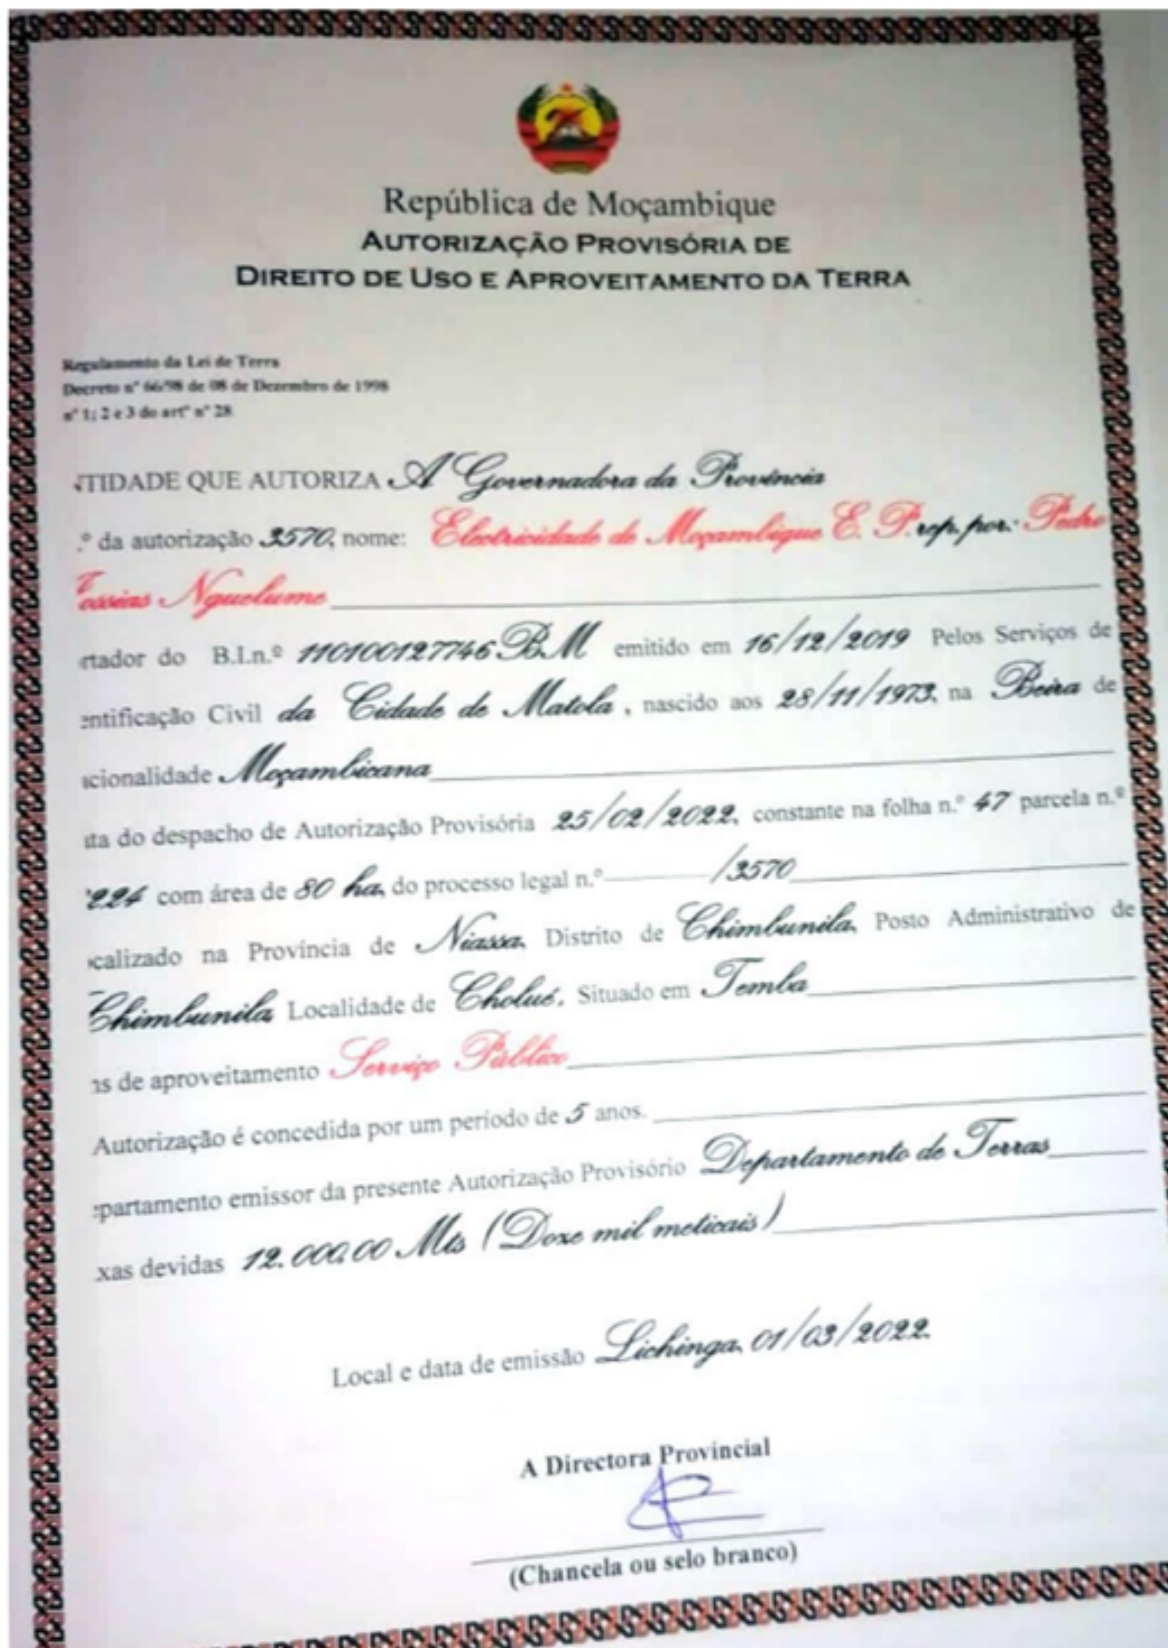 República de Moçambique
AUTORIZAÇÃO PROVISÓRIA DE
DIREITO DE USO E APROVEITAMENTO DA TERRA
Regulamento da Lei de Terra
Decreto nº 66/98 de 08 de Dezembro de 1998
nº 1; 2 e 3 do artº nº 28
TIDADE QUE AUTORIZA A Governadora da Província
.º da autorização 3570, nome: Electricidade de Moçambique E. P. rep. por: Pedro
Jossias Nguelume
rtador do B.I.n.º 110100127746BM emitido em 16/12/2019 Pelos Serviços de
entificação Civil da Cidade de Matola , nascido aos 28/11/1973, na Beira de
cionalidade Moçambicana
ta do despacho de Autorização Provisória 25/02/2022, constante na folha n.º 47 parcela n.º
224 com área de 80 ha, do processo legal n.º /3570
calizado na Província de Niassa, Distrito de Chimbunila, Posto Administrativo de
Chimbunila Localidade de Cholué, Situado em Temba
ns de aproveitamento Serviço Público
Autorização é concedida por um período de 5 anos.
partamento emissor da presente Autorização Provisório Departamento de Terras
xas devidas 12.000,00 Mts (Doze mil meticais)
Local e data de emissão Lichinga, 01/03/2022
A Directora Provincial
(Chancela ou selo branco)